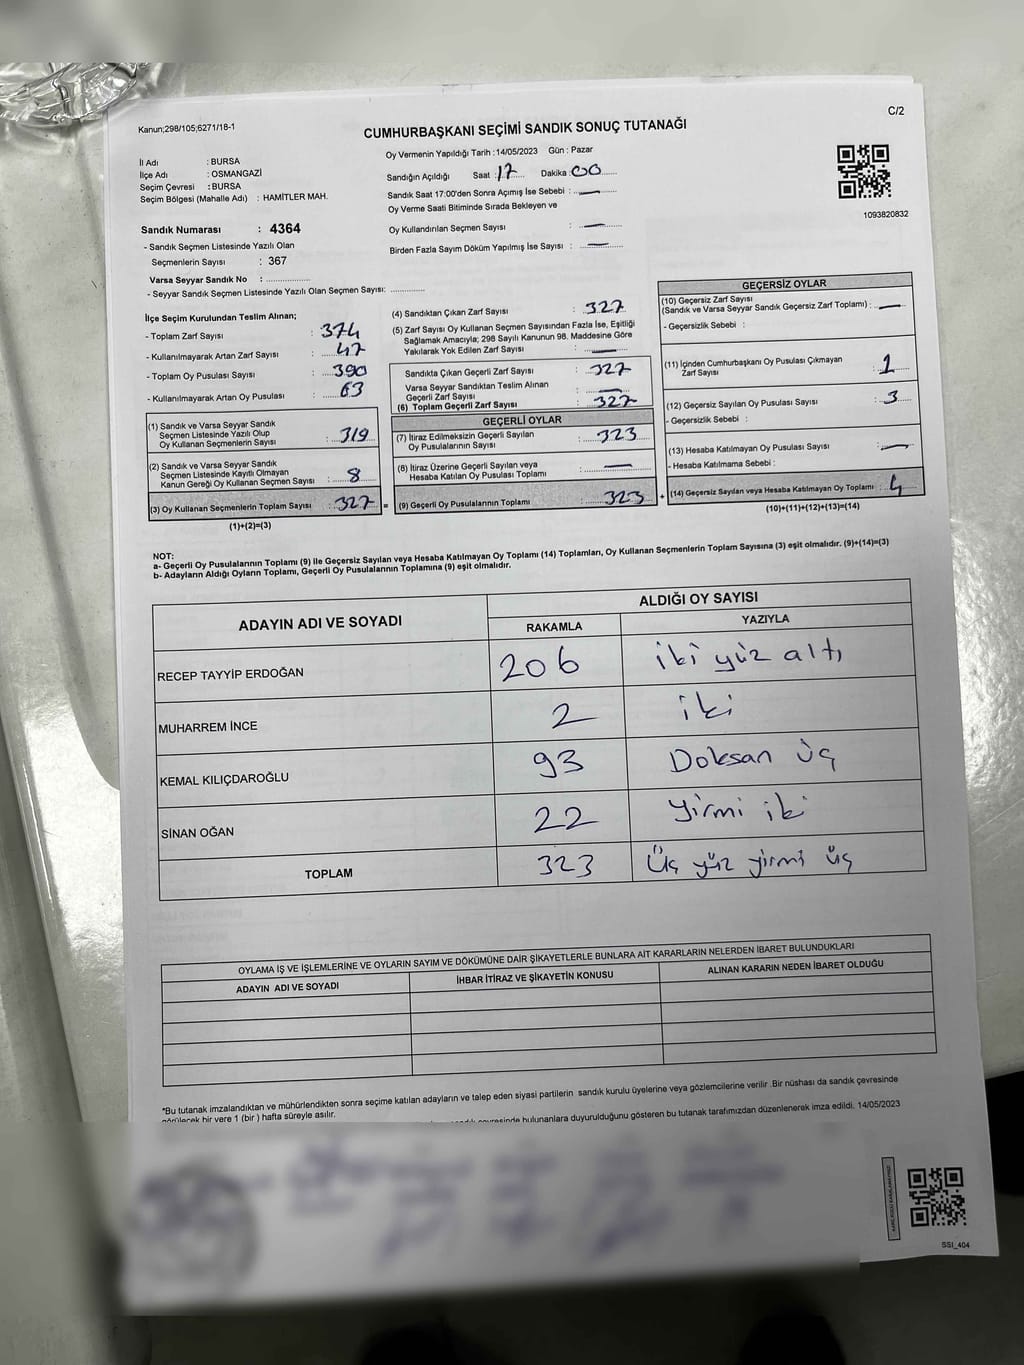 Kanun;298/105;6271/18-1
C/2
CUMHURBAŞKANI SEÇİMİ SANDIK SONUÇ TUTANAĞI
İl Adı : BURSA
İlçe Adı : OSMANGAZİ
Seçim Çevresi : BURSA
Seçim Bölgesi (Mahalle Adı) : HAMİTLER MAH.
Oy Vermenin Yapıldığı Tarih :14/05/2023 Gün : Pazar
Sandığın Açıldığı Saat :17...... Dakika :00......
Sandık Saat 17:00'den Sonra Açımış İse Sebebi : —
Oy Verme Saati Bitiminde Sırada Bekleyen ve
Oy Kullandırılan Seçmen Sayısı : —
Birden Fazla Sayım Döküm Yapılmış İse Sayısı : —
1093820832
Sandık Numarası : 4364
- Sandık Seçmen Listesinde Yazılı Olan
Seçmenlerin Sayısı : 367
Varsa Seyyar Sandık No : ..............
- Seyyar Sandık Seçmen Listesinde Yazılı Olan Seçmen Sayısı: ............
İlçe Seçim Kurulundan Teslim Alınan;
- Toplam Zarf Sayısı : 374
- Kullanılmayarak Artan Zarf Sayısı : 47
- Toplam Oy Pusulası Sayısı : 390
- Kullanılmayarak Artan Oy Pusulası : 63
(1) Sandık ve Varsa Seyyar Sandık
Seçmen Listesinde Yazılı Olup
Oy Kullanan Seçmenlerin Sayısı : 319
(2) Sandık ve Varsa Seyyar Sandık
Seçmen Listesinde Kayıtlı Olmayan
Kanun Gereği Oy Kullanan Seçmen Sayısı : 8
(3) Oy Kullanan Seçmenlerin Toplam Sayısı : 327 =
(1)+(2)=(3)
(4) Sandıktan Çıkan Zarf Sayısı : 327
(5) Zarf Sayısı Oy Kullanan Seçmen Sayısından Fazla İse, Eşitliği
Sağlamak Amacıyla; 298 Sayılı Kanunun 98. Maddesine Göre
Yakılarak Yok Edilen Zarf Sayısı : —
Sandıkta Çıkan Geçerli Zarf Sayısı : 327
Varsa Seyyar Sandıktan Teslim Alınan
Geçerli Zarf Sayısı : —
(6) Toplam Geçerli Zarf Sayısı : 327
GEÇERLİ OYLAR
(7) İtiraz Edilmeksizin Geçerli Sayılan
Oy Pusulasının Sayısı : 323
(8) İtiraz Üzerine Geçerli Sayılan veya
Hesaba Katılan Oy Pusulası Toplamı : —
(9) Geçerli Oy Pusulalarının Toplamı : 323 +
GEÇERSİZ OYLAR
(10) Geçersiz Zarf Sayısı
(Sandık ve Varsa Seyyar Sandık Geçersiz Zarf Toplamı) : —
- Geçersizlik Sebebi :
(11) İçinden Cumhurbaşkanı Oy Pusulası Çıkmayan
Zarf Sayısı : 1
(12) Geçersiz Sayılan Oy Pusulası Sayısı : 3
- Geçersizlik Sebebi :
(13) Hesaba Katılmayan Oy Pusulası Sayısı : —
- Hesaba Katılmama Sebebi :
(14) Geçersiz Sayılan veya Hesaba Katılmayan Oy Toplamı : 4
(10)+(11)+(12)+(13)=(14)
NOT:
a- Geçerli Oy Pusulalarının Toplamı (9) ile Geçersiz Sayılan veya Hesaba Katılmayan Oy Toplamı (14) Toplamları, Oy Kullanan Seçmenlerin Toplam Sayısına (3) eşit olmalıdır. (9)+(14)=(3)
b- Adayların Aldığı Oyların Toplamı, Geçerli Oy Pusulalarının Toplamına (9) eşit olmalıdır.
ADAYIN ADI VE SOYADI
ALDIĞI OY SAYISI
RAKAMLA YAZIYLA
RECEP TAYYİP ERDOĞAN 206 iki yüz altı
MUHARREM İNCE 2 iki
KEMAL KILIÇDAROĞLU 93 Doksan üç
SİNAN OĞAN 22 yirmi iki
TOPLAM 323 Üç yüz yirmi üç
OYLAMA İŞ VE İŞLEMLERİNE VE OYLARIN SAYIM VE DÖKÜMÜNE DAİR ŞİKAYETLERLE BUNLARA AİT KARARLARIN NELERDEN İBARET BULUNDUKLARI
ADAYIN ADI VE SOYADI İHBAR İTİRAZ VE ŞİKAYETİN KONUSU ALINAN KARARIN NEDEN İBARET OLDUĞU
*Bu tutanak imzalandıktan ve mühürlendikten sonra seçime katılan adayların ve talep eden siyasi partilerin sandık kurulu üyelerine veya gözlemcilerine verilir .Bir nüshası da sandık çevresinde
görülecek bir yere 1 (bir ) hafta süreyle asılır.
çevresinde bulunanlara duyurulduğunu gösteren bu tutanak tarafımızdan düzenlenerek imza edildi. 14/05/2023
SSI_404